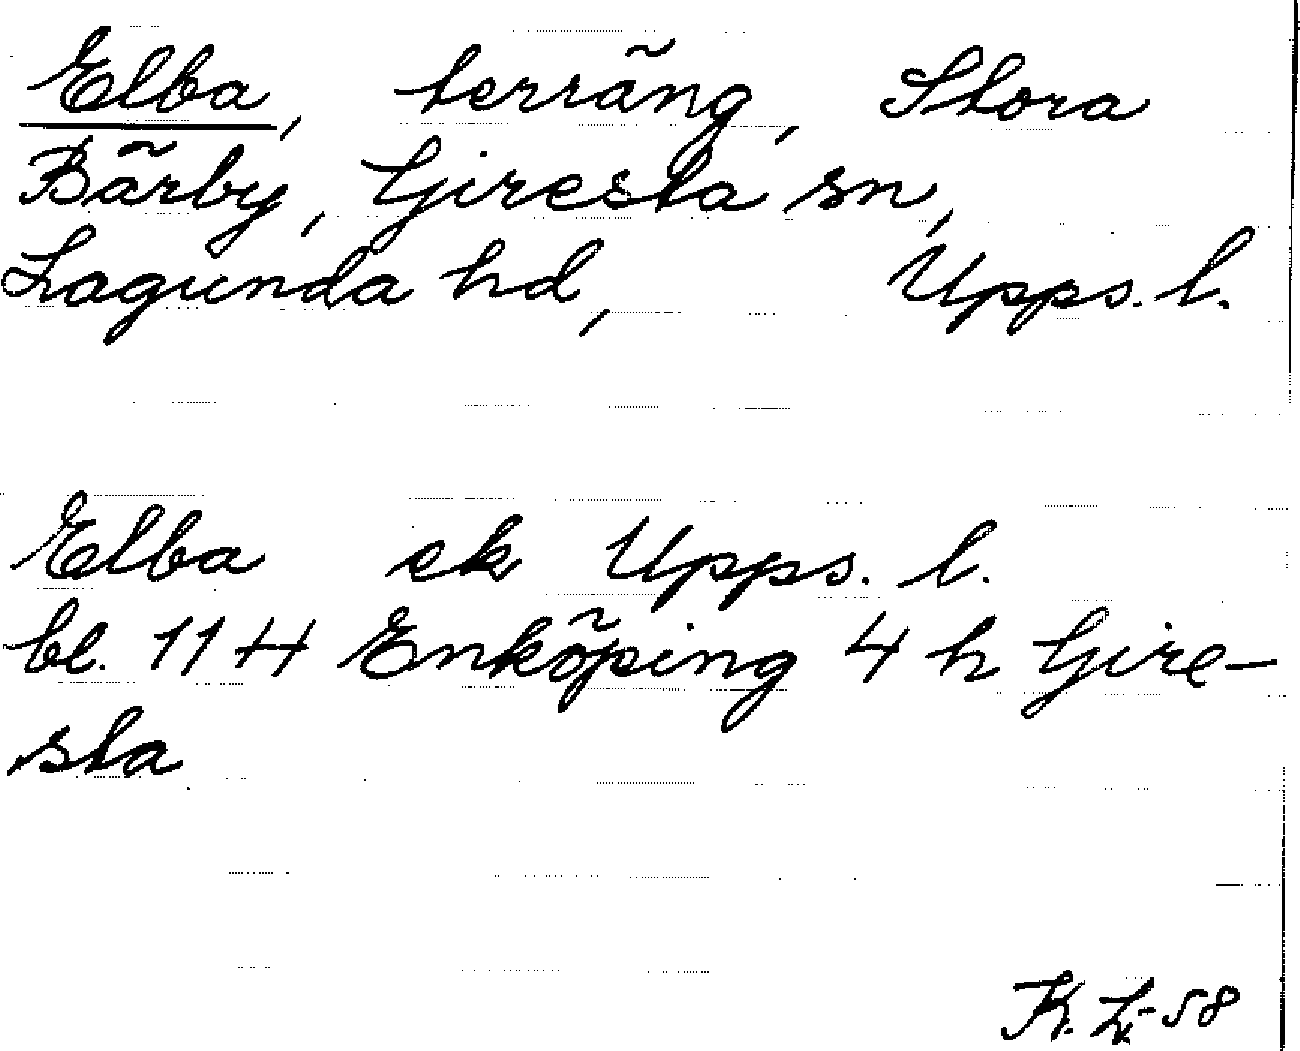 Elba, terräng, Stora
Bärby, Giresta sn,
Lagunda hd, Upps. l.
Elba ek Upps. l.
bl. 11 H Enköping 4 h Gire-
sta
K. L-58